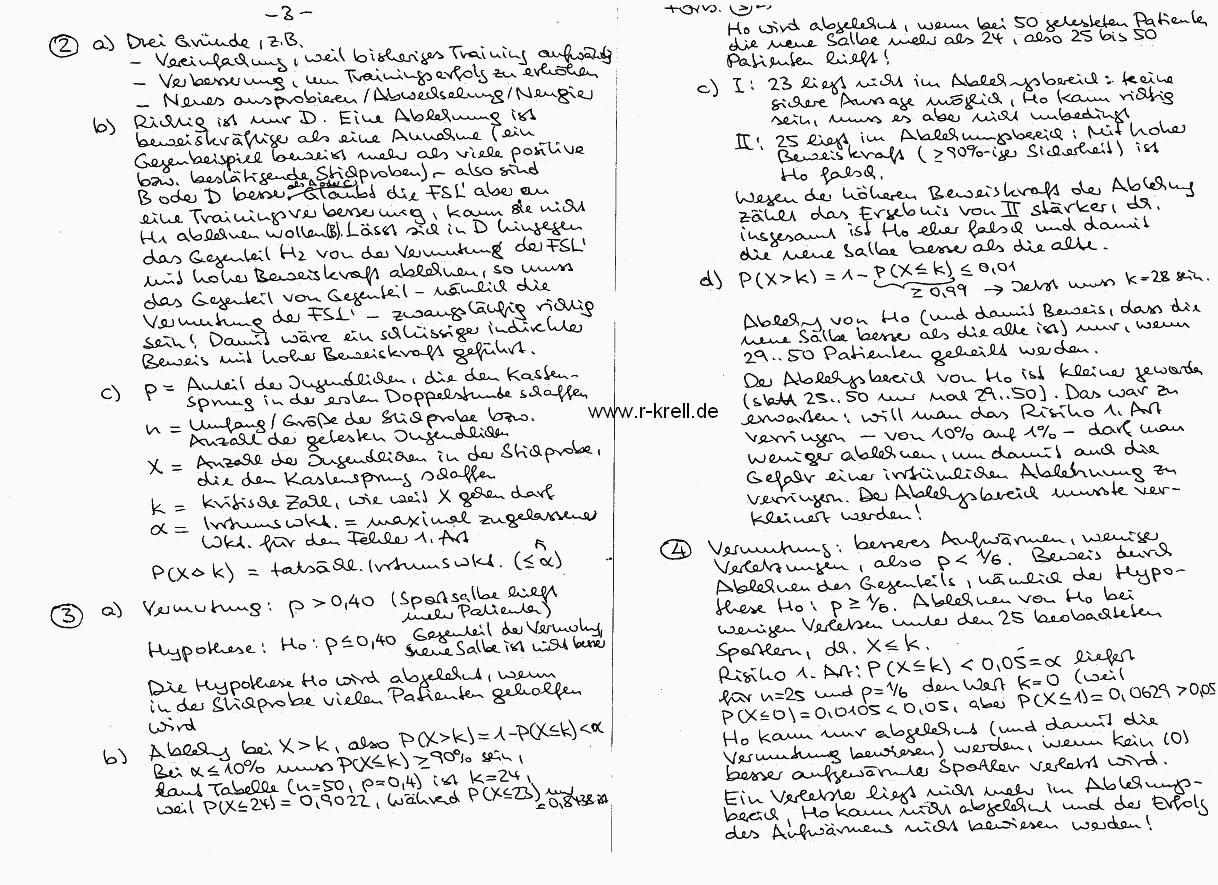 -3-
② a) Drei Gründe, z.B.
- Vereinfachung, weil bisheriges Training aufwändig
- Verbesserung, um Trainingserfolg zu erhöhen
- Neues ausprobieren/Abwechselung/Neugier
b) Richtig ist nur D. Eine Ablehnung ist
beweiskräftiger als eine Annahme (ein
Gegenbeispiel beweist mehr als viele positive
bzw. bestätigende Stichproben) - also sind
B oder D besser
Glaubt die FSL' aber an
eine Trainingsverbesserung, kann sie nicht
H1 ablehnen wollen (B). Lässt sich in D hingegen
das Gegenteil H2 von der Vermutung der FSL'
mit hoher Beweiskraft ablehnen, so muss
das Gegenteil vom Gegenteil - nämlich die
Vermutung der FSL' - zwangsläufig richtig
sein! Damit wäre ein schlüssiger indirekter
Beweis mit hoher Beweiskraft geführt.
c) p = Anteil der Jugendlichen, die den Kasten-
sprung in der ersten Doppelstunde schaffen
n = Umfang/Größe der Stichprobe bzw.
Anzahl der getesten Jugendlichen
X = Anzahl der Jugendlichen in der Stichprobe,
die den Kastensprung schaffen
k = kritische Zahl, wie weit X gehen darf
α = Irrtumswkt. = maximal zugelassene
Wkt. für den Fehler 1. Art
P(X △ k) = tatsächl. Irrtumswkt. (≤ α)
③ a) Vermutung: p > 0,40 (Sportsalbe hilft
mehr Patienten)
Hypothese: Ho: p ≤ 0,40 Gegenteil der Vermutung,
neue Salbe ist nicht besser
Die Hypothese Ho wird abgelehnt, wenn
in der Stichprobe vielen Patienten geholfen
wird
b) Ablehng bei X > k, also P(X>k) = 1-P(X≤k) < α
Bei α ≤ 10% muss P(X≤k) ≥ 90% sein,
laut Tabelle (n=50, p=0,4) ist k=24,
weil P(X≤24) = 0,9022, während P(X≤23) nur
= 0,8438 ist
Forts. ③
Ho wird abgelehnt, wenn bei 50 getesteten Patienten
die neue Salbe mehr als 24, also 25 bis 50
Patienten hilft!
c) I: 23 liegt nicht im Ablehngsbereich: keine
sichere Aussage möglich, Ho kann richtig
sein, muss es aber nicht unbedingt
II: 25 liegt im Ablehnungsbereich: Mit hoher
Beweiskraft (≥90%-iger Sicherheit) ist
Ho falsch.
Wegen der höheren Beweiskraft der Ablehng
zählt das Ergebnis von II stärker, dh.
insgesamt ist Ho eher falsch und damit
die neue Salbe besser als die alte.
d) P(X>k) = 1 - P(X≤k) ≤ 0,01
≥ 0,99 → Jetzt muss k=28 sein.
Ablehng von Ho (und damit Beweis, dass die
neue Salbe besser als die alte ist) nur, wenn
29..50 Patienten geheilt werden.
Der Ablehngsbereich von Ho ist kleiner geworden
(statt 25..50 nur mal 29..50). Das war zu
erwarten: will man das Risiko 1. Art
verringern - von 10% auf 1% - darf man
weniger ablehnen, um damit auch die
Gefahr einer irrtümlichen Ablehnung zu
verringern. Der Ablehngsbereich musste ver-
kleinert werden!
④ Vermutung: besseres Aufwärmen, weniger
Verletzungen, also p < 1/6. Beweis durch
Ablehnen des Gegenteils, nämlich der Hypo-
these Ho: p ≥ 1/6. Ablehnen von Ho bei
wenigen Verletzten unter den 25 beobachteten
Sportlern, dh. X ≤ k.
Risiko 1. Art: P(X≤k) < 0,05 = α liefert
für n=25 und p=1/6 den Wert k=0 (weil
P(X≤0) = 0,0105 < 0,05, aber P(X≤1) = 0,0629 > 0,05
Ho kann nur abgelehnt (und damit die
Vermutung bewiesen) werden, wenn kein (0)
besser aufgewärmter Sportler verletzt wird.
Ein Verletzter liegt nicht mehr im Ablehnungs-
bereich, Ho kann nicht abgelehnt und der Erfolg
des Aufwärmens nicht bewiesen werden!
www.r-krell.de